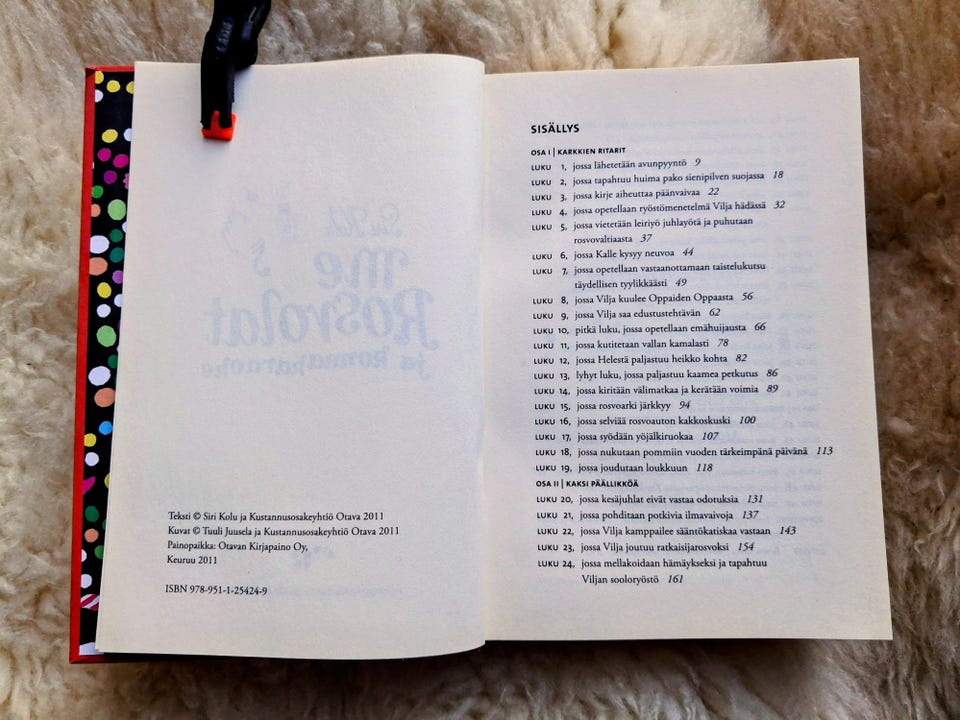 Teksti © Siri Kolu ja Kustannusosakeyhtiö Otava 2011
Kuvat © Tuuli Juusela ja Kustannusosakeyhtiö Otava 2011
Painopaikka: Otavan Kirjapaino Oy,
Keuruu 2011
ISBN 978-951-1-25424-9
SISÄLLYS
OSA I | KARKKIEN RITARIT
LUKU 1, jossa lähetetään avunpyyntö 9
LUKU 2, jossa tapahtuu huima pako sienipilven suojassa 18
LUKU 3, jossa kirje aiheuttaa päänvaivaa 22
LUKU 4, jossa opetellaan ryöstömenetelmä Vilja hädässä 32
LUKU 5, jossa vietetään leiriyö juhlayötä ja puhutaan
rosvovaltiaasta 37
LUKU 6, jossa Kalle kysyy neuvoa 44
LUKU 7, jossa opetellaan vastaanottamaan taistelukutsu
täydellisen tyylikkäästi 49
LUKU 8, jossa Vilja kuulee Oppaiden Oppaasta 56
LUKU 9, jossa Vilja saa edustustehtävän 62
LUKU 10, pitkä luku, jossa opetellaan emähuijausta 66
LUKU 11, jossa kutitetaan vallan kamalasti 78
LUKU 12, jossa Helestä paljastuu heikko kohta 82
LUKU 13, lyhyt luku, jossa paljastuu kaamea petkutus 86
LUKU 14, jossa kiritään välimatkaa ja kerätään voimia 89
LUKU 15, jossa rosvoarki järkkyy 94
LUKU 16, jossa selviää rosvoauton kakkoskuski 100
LUKU 17, jossa syödään yöjälkiruokaa 107
LUKU 18, jossa nukutaan pommiin vuoden tärkeimpänä päivänä 113
LUKU 19, jossa joudutaan loukkuun 118
OSA II | KAKSI PÄÄLLIKKÖÄ
LUKU 20, jossa kesäjuhlat eivät vastaa odotuksia 131
LUKU 21, jossa pohditaan potkivia ilmavaivoja 137
LUKU 22, jossa Vilja kamppailee sääntökatiskaa vastaan 143
LUKU 23, jossa Vilja joutuu ratkaisijarosvoksi 154
LUKU 24, jossa mellakoidaan hämäykseksi ja tapahtuu
Viljan sooloryöstö 161